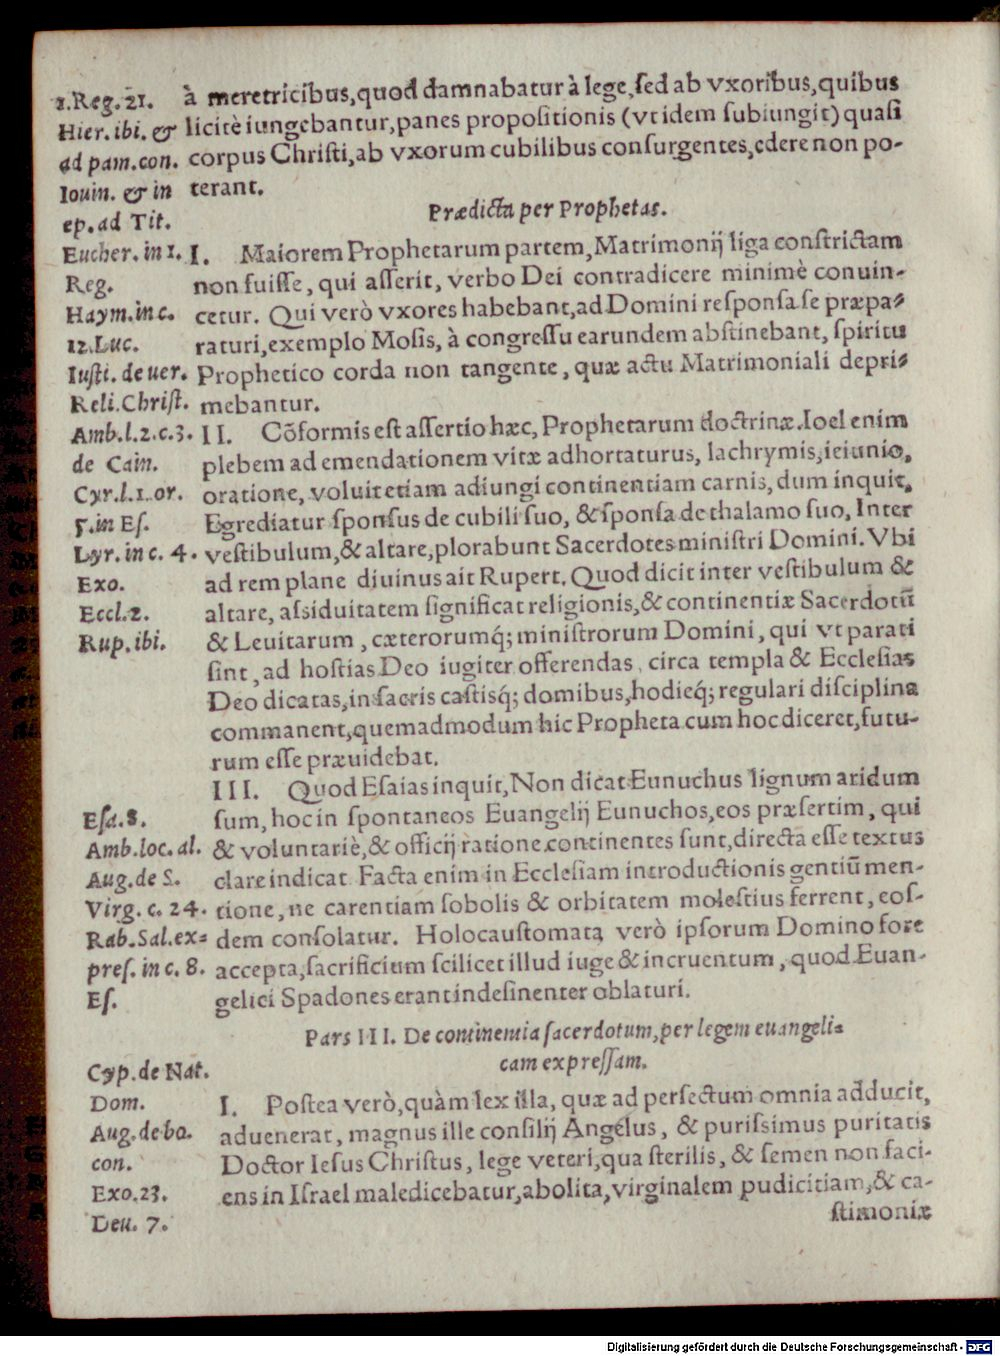 1.Reg.21.
Hier. ibi. &
ad pam.con.
Iouin. & in
ep.ad Tit.
Eucher. in 1.
Reg.
Haym.in c.
12.Luc.
Iusti. de uer.
Reli.Christ.
Amb.l.2.c.3.
de Cain.
Cyr.l.1.or.
5.in Es.
Lyr.in c. 4.
Exo.
Eccl.2.
Rup.ibi.
Esa.8.
Amb.loc.al.
Aug.de S.
Virg. c. 24.
Rab.Sal.ex-
pres. in c. 8.
Es.
Cyp.de Nat.
Dom.
Aug.de bo.
con.
Exo.23.
Deu. 7.
à meretricibus,quod damnabatur à lege,ſed ab vxoribus,quibus
licitè iungebantur,panes propoſitionis (vt idem ſubiungit) quaſi
corpus Chriſti,ab vxorum cubilibus conſurgentes,edere non po-
terant.
Prædicta per Prophetas.
I. Maiorem Prophetarum partem,Matrimonij liga conſtrictam
non fuiſſe, qui aſſerit, verbo Dei contradicere minimè conuin-
cetur. Qui verò vxores habebant,ad Domini reſponſa ſe præpa-
raturi,exemplo Moſis, à congreſſu earundem abſtinebant, ſpiritu
Prophetico corda non tangente, quæ actu Matrimoniali depri-
mebantur.
II. Cõformis eſt aſſertio hæc, Prophetarum doctrinæ.Ioel enim
plebem ad emendationem vitæ adhortaturus, lachrymis,ieiunio,
oratione, voluit etiam adiungi continentiam carnis, dum inquit,
Egrediatur ſponſus de cubili ſuo, & ſponſa de thalamo ſuo, Inter
veſtibulum,& altare,plorabunt Sacerdotes miniſtri Domini. Vbi
ad rem plane diuinus ait Rupert. Quod dicit inter veſtibulum &
altare, aſsiduitatem ſignificat religionis,& continentiæ Sacerdotũ
& Leuitarum, cæterorumq́; miniſtrorum Domini, qui vt parati
ſint, ad hoſtias Deo iugiter offerendas, circa templa & Eccleſias
Deo dicatas,in ſacris caſtisq́; domibus,hodieq́; regulari diſciplina
commanent,quemadmodum hic Propheta cum hoc diceret,futu-
rum eſſe præuidebat.
III. Quod Eſaias inquit,Non dicat Eunuchus lignum aridum
ſum, hoc in ſpontaneos Euangelij Eunuchos,eos præſertim, qui
& voluntariè,& officij ratione continentes ſunt,directa eſſe textus
clare indicat. Facta enim in Eccleſiam introductionis gentiũ men-
tione, ne carentiam ſobolis & orbitatem moleſtius ferrent, eoſ-
dem conſolatur. Holocauſtomata verò ipſorum Domino fore
accepta,ſacrificium ſcilicet illud iuge & incruentum, quod Euan-
gelici Spadones erant indeſinenter oblaturi.
Pars III. De continentia ſacerdotum,per legem euangeli-
cam expreſſam.
I. Poſtea verò,quàm lex illa, quæ ad perfectum omnia adducit,
aduenerat, magnus ille conſilij Angelus, & puriſsimus puritatis
Doctor Ieſus Chriſtus, lege veteri,qua ſterilis, & ſemen non faci-
ens in Iſrael maledicebatur,abolita,virginalem pudicitiam,& ca-
ſtimoniæ
Digitalisierung gefördert durch die Deutsche Forschungsgemeinschaft - DFG